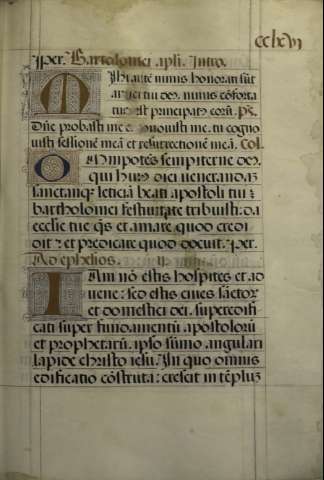 cclxcvi
per. Bartolomei apli. Intro.
Mihi autē nimis honorati sūt
amici tui deꝰ. nimis cōforta
tus est principatꝰ eorū. Ps.
Dn̄e probasti me et cognouisti me. tu cogno
uisti sessionē meā et resurrectionē meā. Col.
Omnipotēs sempiterne deꝰ.
qui huiꝰ diei venerandā
sanctamqꝫ leticiā beati apostoli tui
bartholomei festiuitate tribuisti: da
ecclesie tue q̄s et amare quod credi
dit: et predicare quod docuit. per.
Ad ephesios.
Iam nō estis hospites et ad
uene: sed estis ciues sāctoꝝ
et domestici dei. superedifi
cati super fundamentū apostolorū
et prophetarū. ipso sūmo angulari
lapide christo iesu. In quo omnis
edificatio cōstructa: crescit in tēpluꝫ